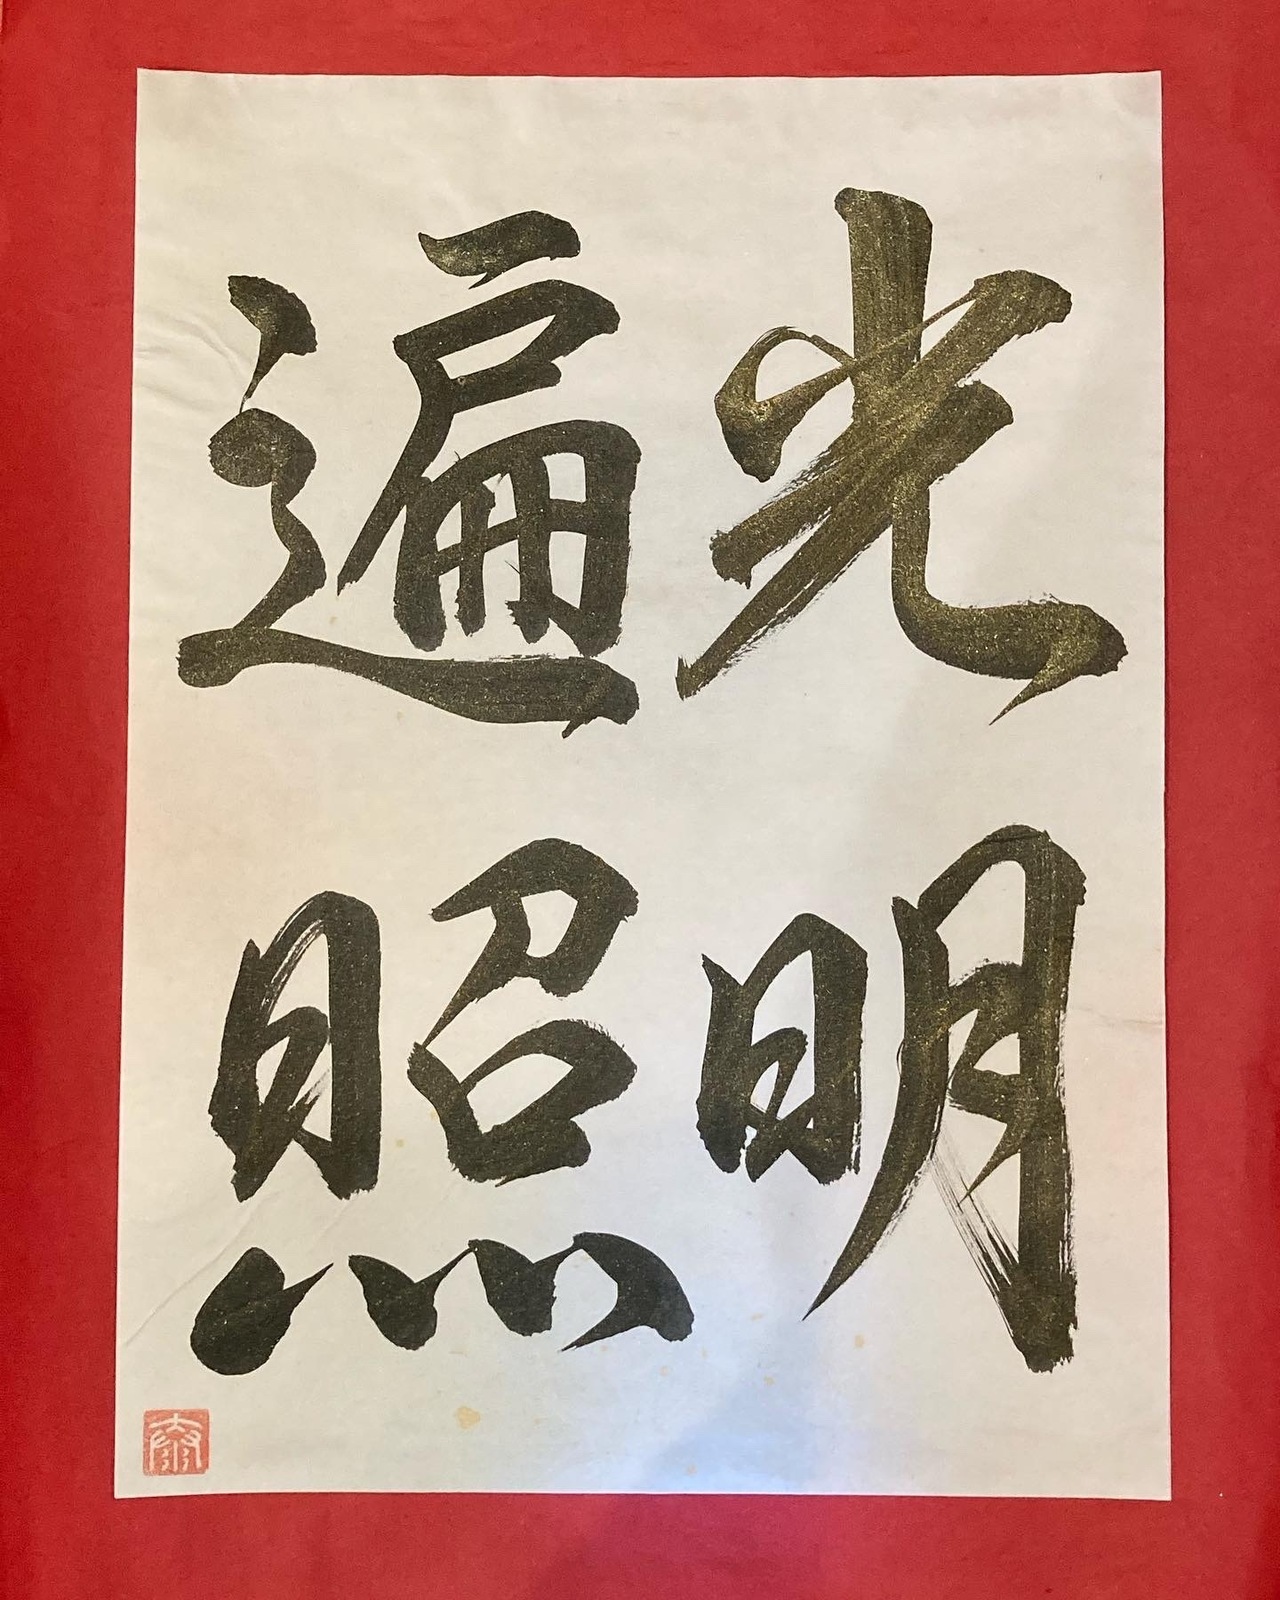 光明
遍照
泰